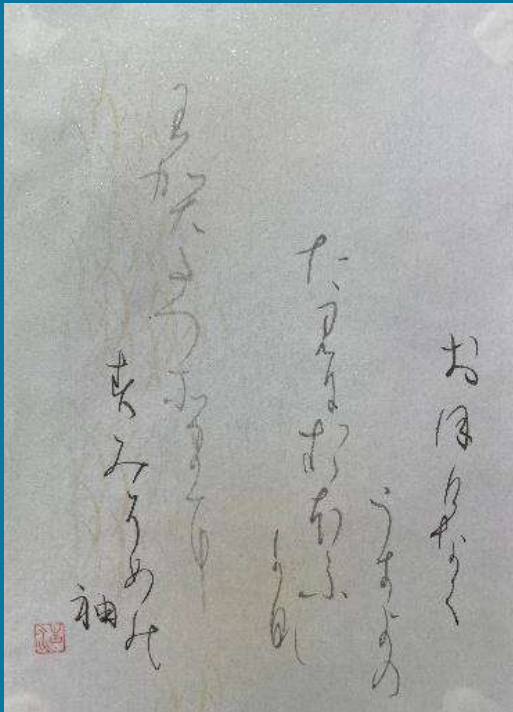 おほけなく
うきよの
たみにおほふ
かな
わかたつそまに
すみそめの
袖